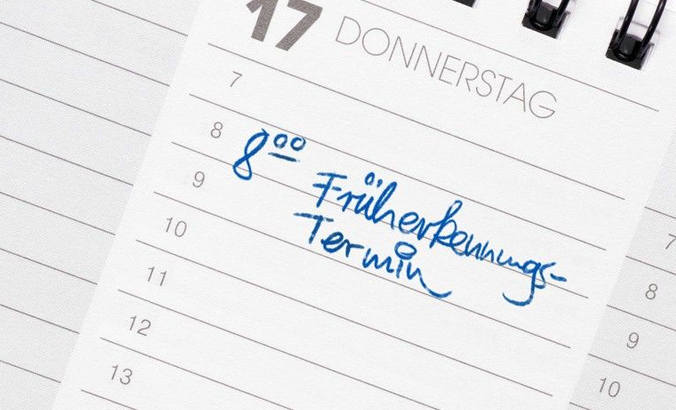 17 DONNERSTAG
7
8 8⁰⁰ Früherkennungs-
9 Termin
10
11
12
13
7
8
9
10